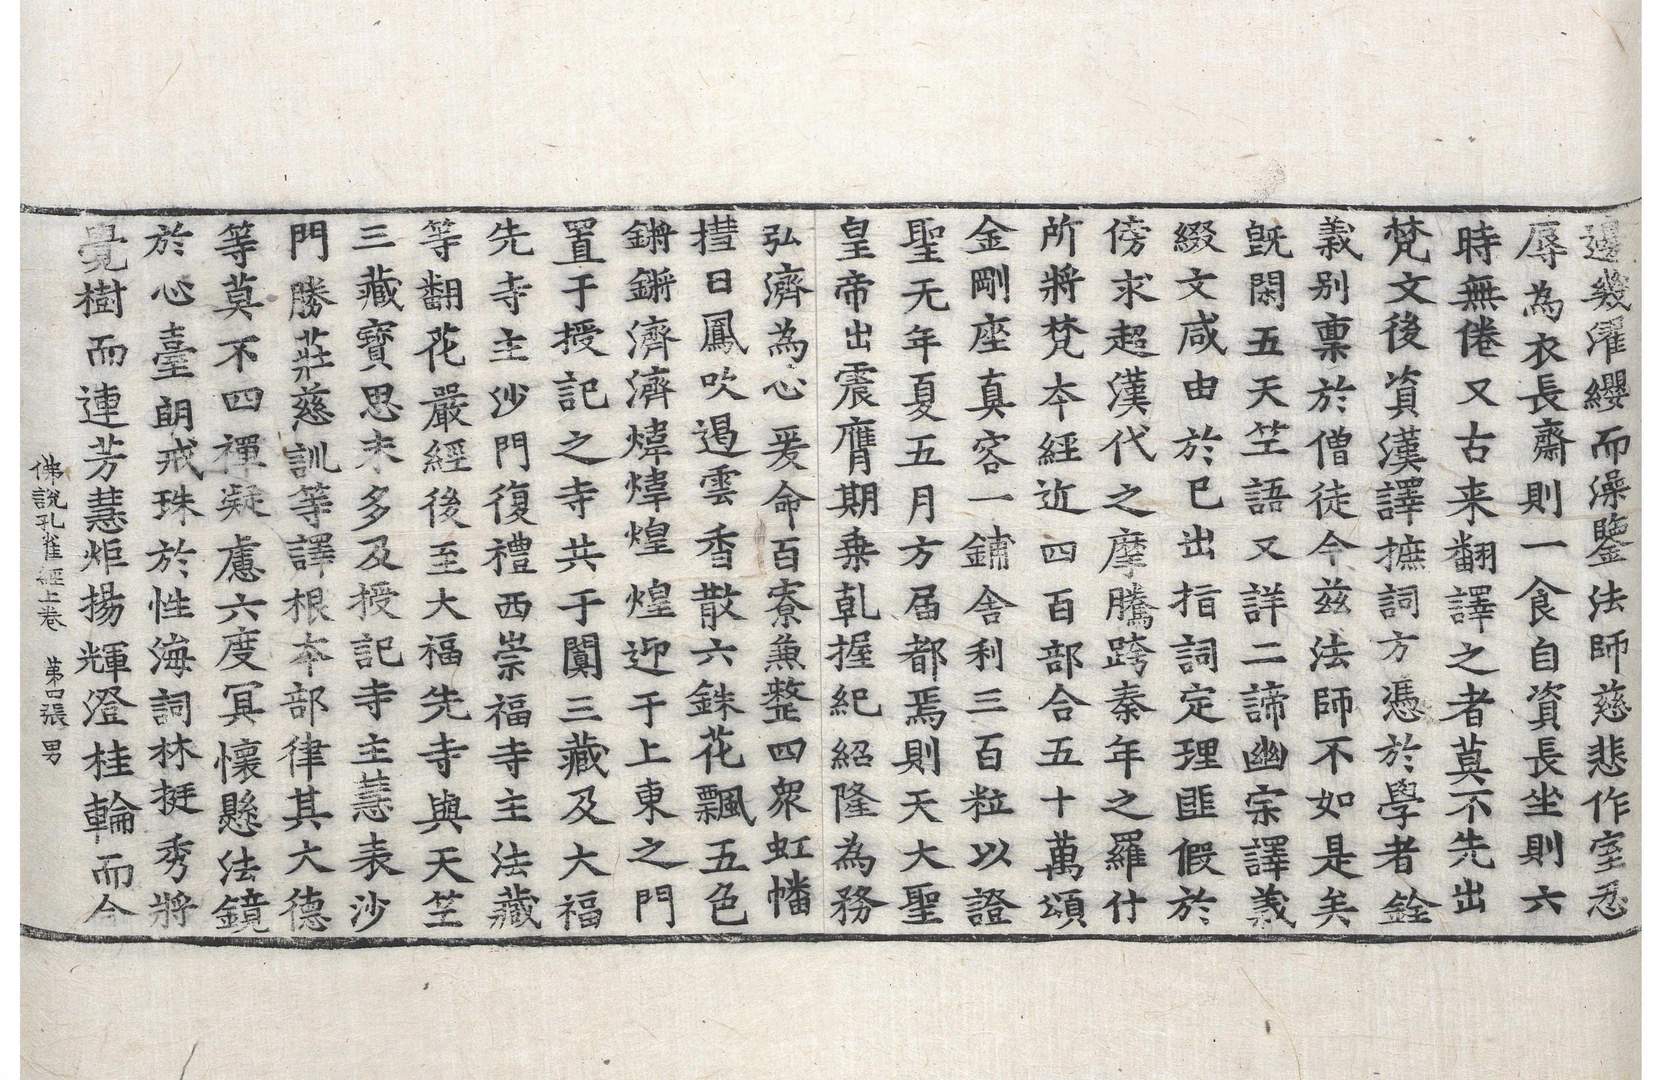 邊幾濯纓而澡鑒法師慈悲作室忍
辱為衣長齋則一食自資長坐則六
時無倦又古来翻譯之者莫不先出
梵文後資漢譯摭詞方憑於學者銓
義别稟於僧徒今兹法師不如是矣
旣閑五天竺語又詳二諦幽宗譯義
綴文咸由於已出指詞定理匪假於
傍求超漢代之摩騰跨秦年之羅什
所將梵夲經近四百部合五十萬頌
金剛座真容一鋪舎利三百粒以證
聖无年夏五月方届都焉則天大聖
皇帝出震膺期乗乹握紀紹隆為務
弘濟為心爰命百寮兼整四衆虹幡
㨗日鳳吹遏雲香散六銖花飄五色
鏘鏘濟濟煒煒煌煌迎于上東之門
置于授記之寺共于闐三藏及大福
先寺主沙門復禮西崇福寺主法藏
等翻花嚴經後至大福先寺與天竺
三藏寶思末多及授記寺主慧表沙
門勝莊慈訓等譯根夲部律其大德
等莫不四禪凝慮六度冥懷懸法鏡
於心臺朗戒珠於性海詞林挺秀將
覺樹而連芳慧炬揚輝澄桂輪而今
佛說孔雀經上卷 第四張 男